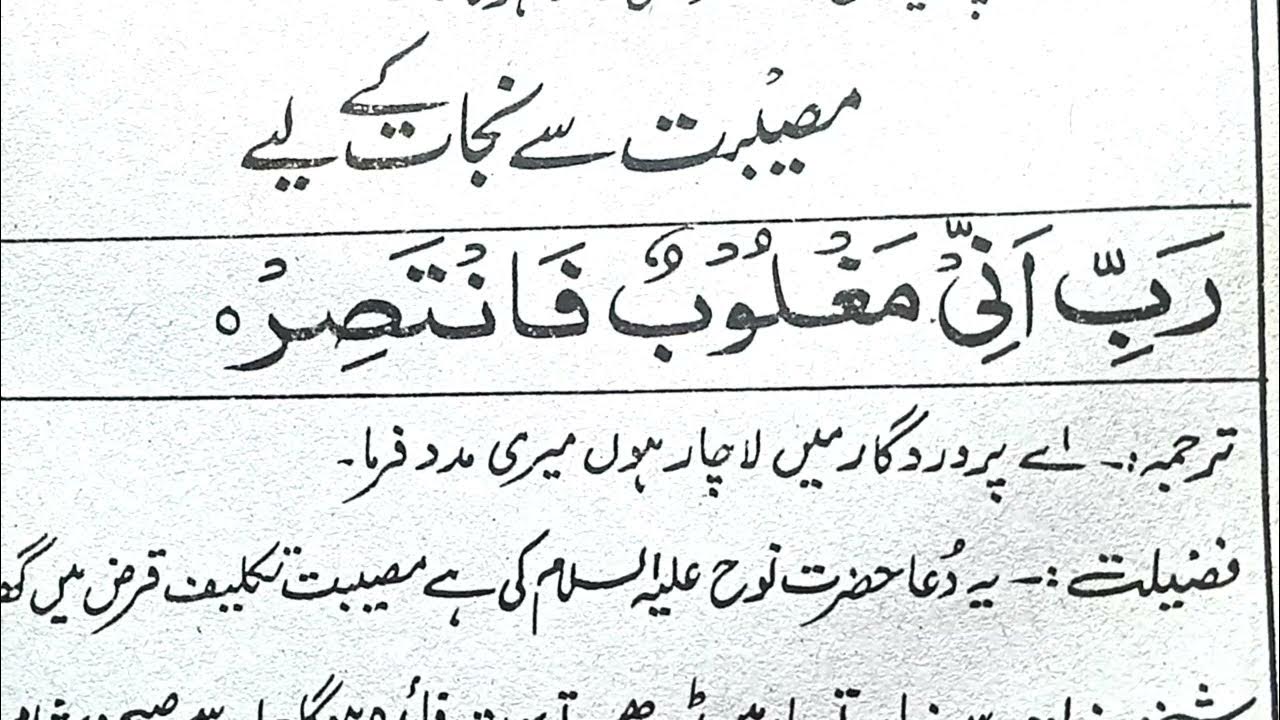 مصیبت سے نجات کے لیے
رَبِّ اَنِّیْ مَغْلُوْبٌ فَانْتَصِرْہ
ترجمہ :۔ اے پروردگار میں لاچار ہوں میری مدد فرما۔
فضیلت :۔ یہ دُعا حضرت نوح علیہ السلام کی ہے مصیبت تکلیف قرض میں